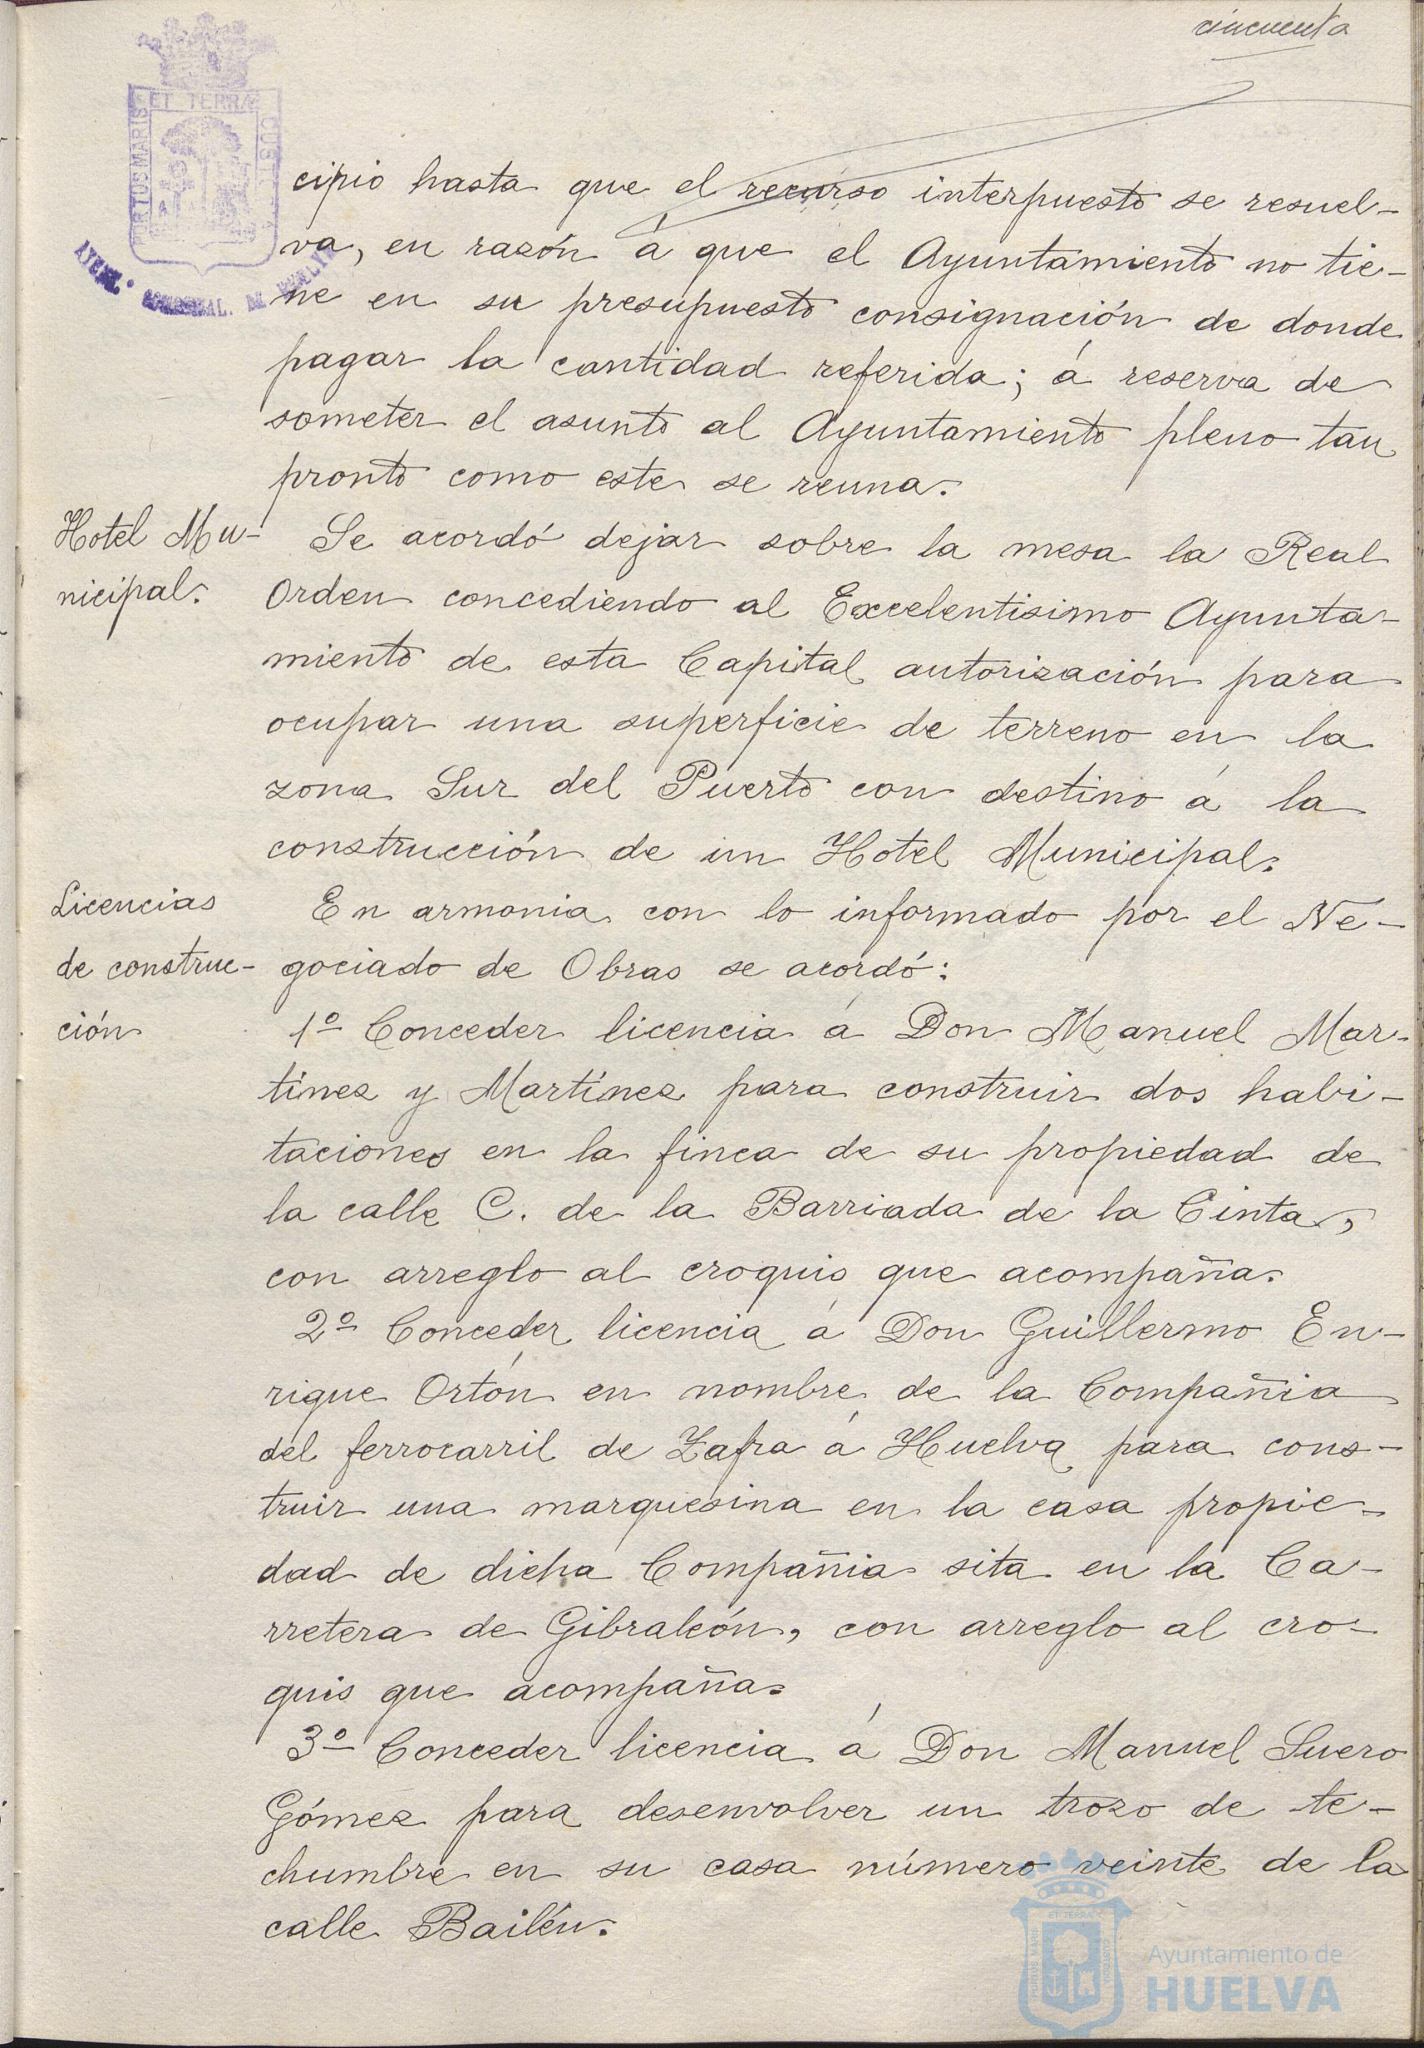 cincuenta
PORTUS MARIS ET TERRAE CUSTODIA
cipio hasta que el recurso interpuesto se resuel-
va, en razón á que el Ayuntamiento no tie-
ne en su presupuesto consignación de donde
pagar la cantidad referida; á reserva de
someter el asunto al Ayuntamiento pleno tan
pronto como este se reuna.
Hotel Mu-
nicipal.
Se acordó dejar sobre la mesa la Real
Orden concediendo al Excelentisimo Ayunta-
miento de esta Capital autorización para
ocupar una superficie de terreno en la
zona Sur del Puerto con destino á la
construcción de un Hotel Municipal.
Licencias
de construc-
ción
En armonia con lo informado por el Ne-
gociado de Obras se acordó:
1º Conceder licencia á Don Manuel Mar-
tínez y Martínez para construir dos habi-
taciones en la finca de su propiedad de
la calle C. de la Barriada de la Cinta,
con arreglo al croquis que acompaña.
2º Conceder licencia á Don Guillermo En-
rique Ortón en nombre de la Compañia
del ferrocarril de Zafra á Huelva para cons-
truir una marquesina en la casa propie-
dad de dicha Compañia sita en la Ca-
rretera de Gibraleón, con arreglo al cro-
quis que acompaña.
3º Conceder licencia á Don Manuel Suero
Gómez para desenvolver un trozo de te-
chumbre en su casa número veinte de la
calle Bailén.
Ayuntamiento de
HUELVA